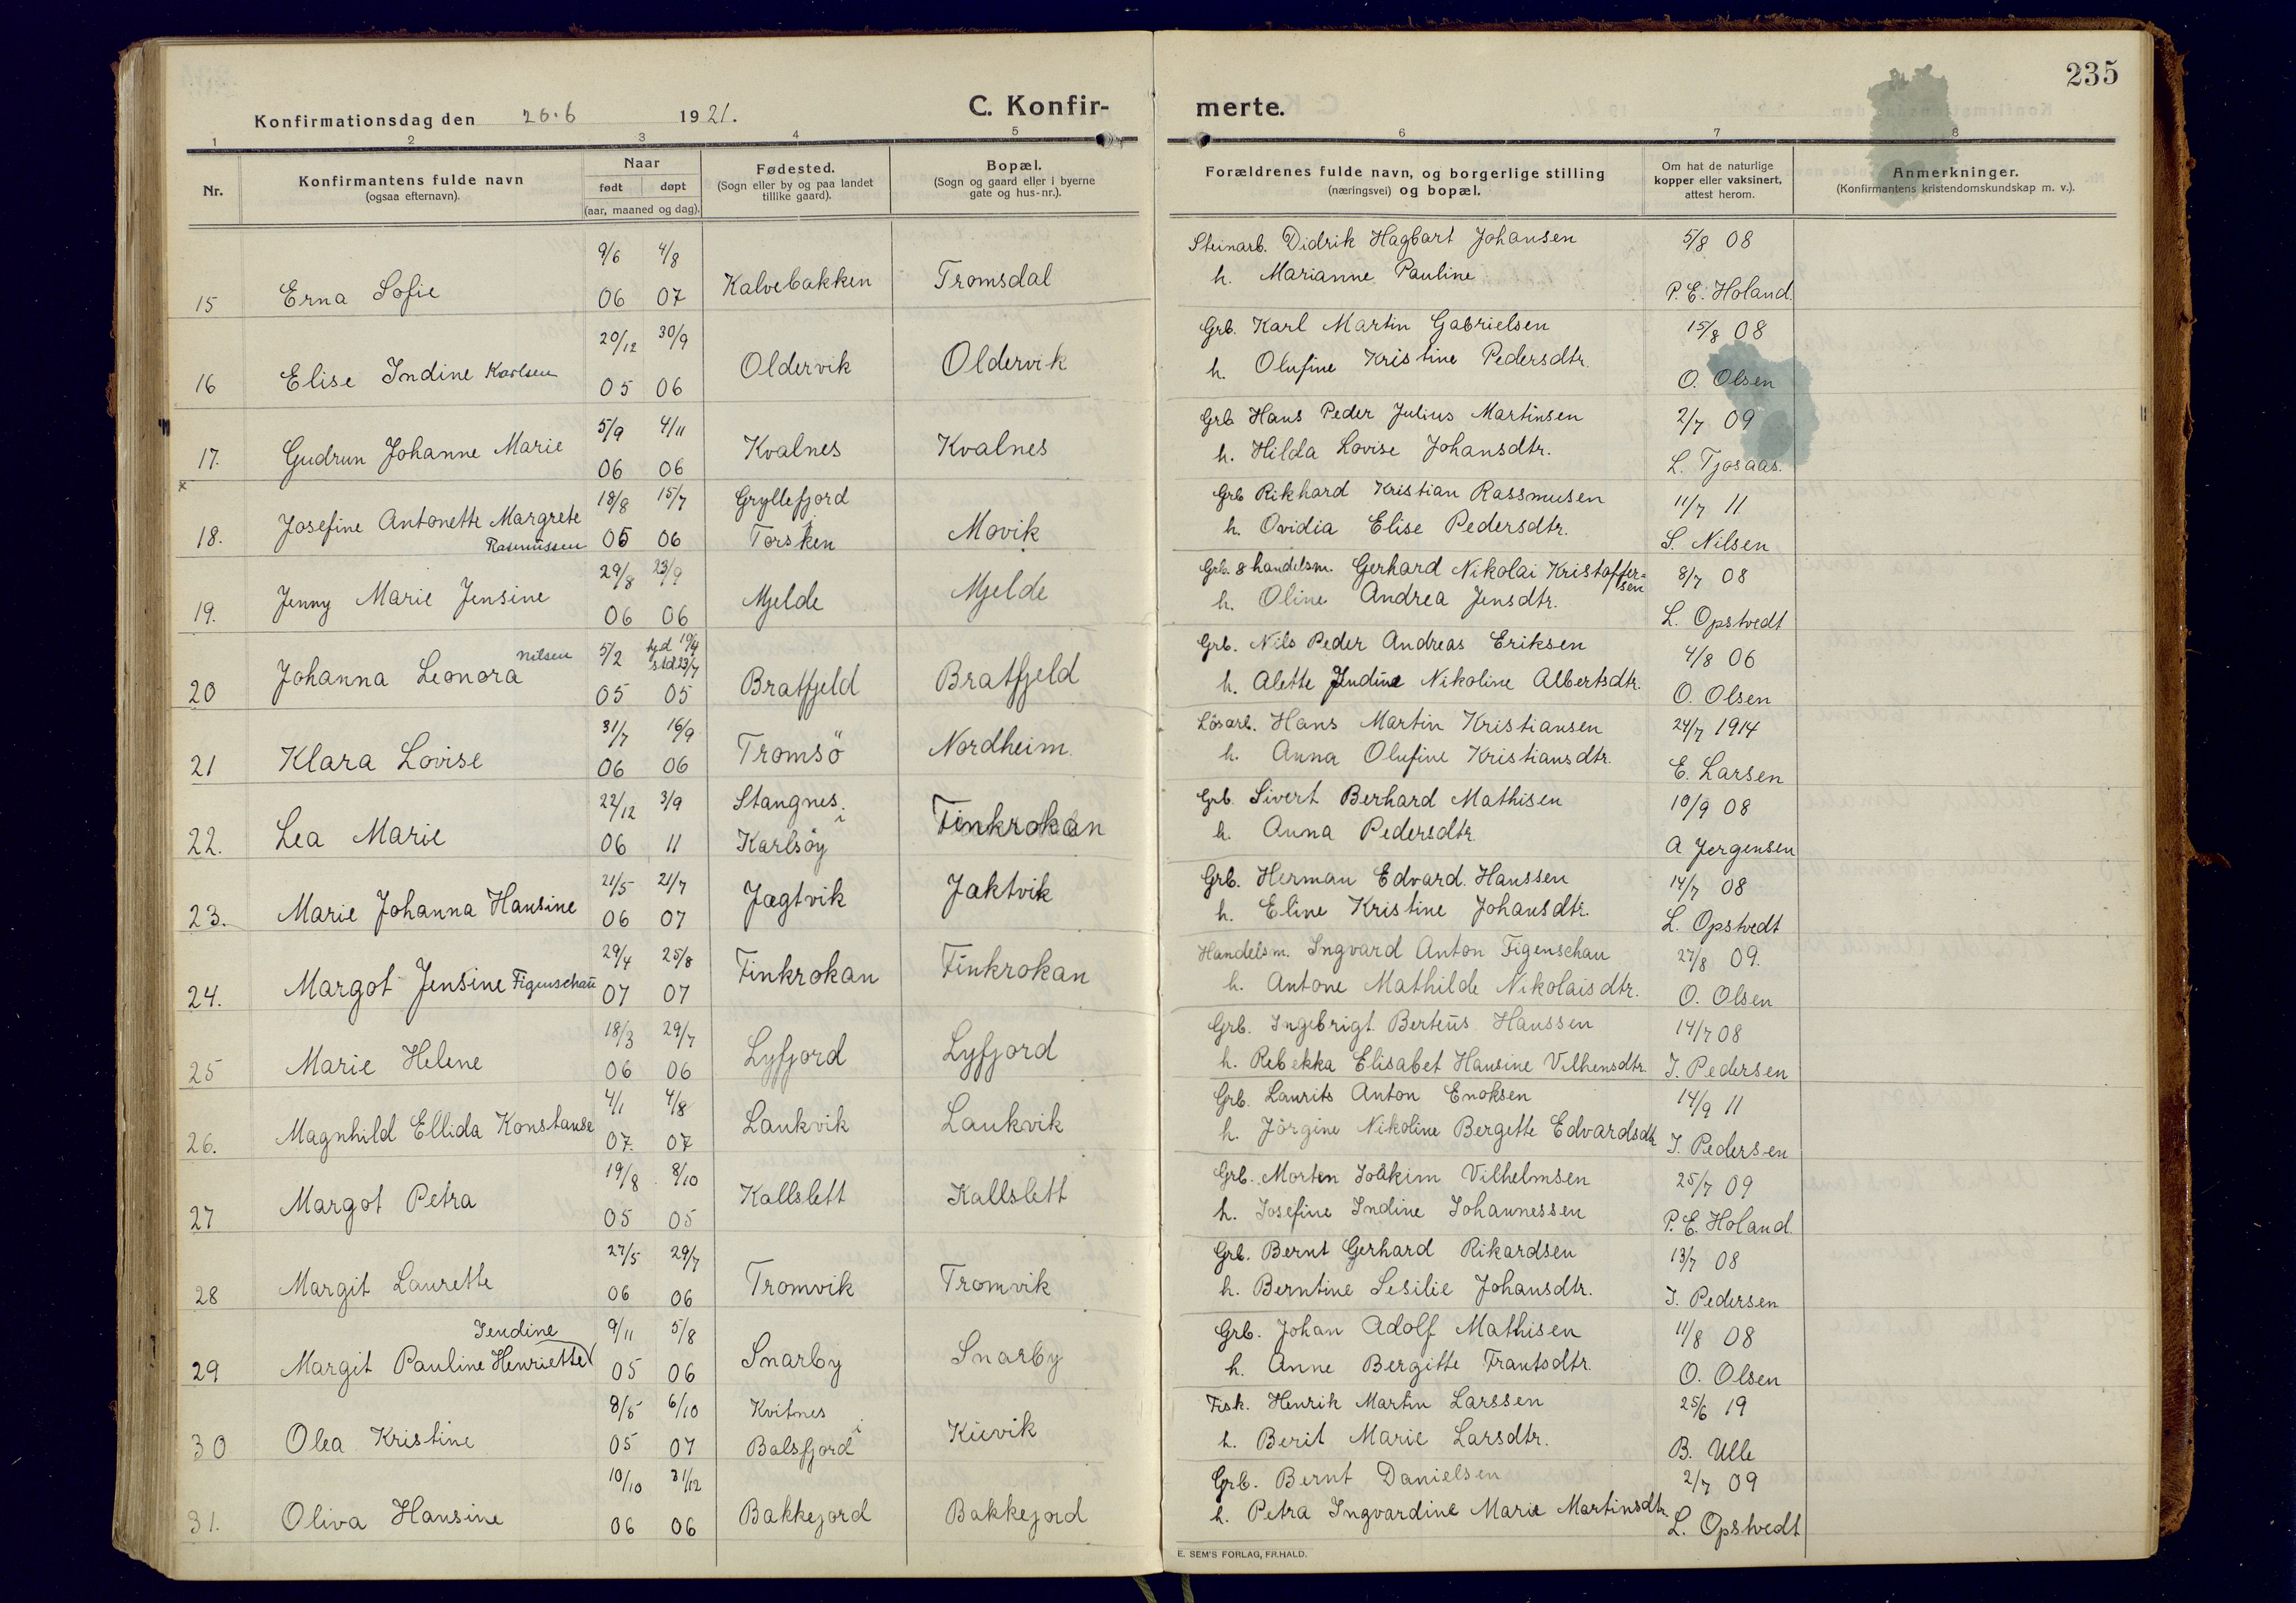 235
Konfirmationsdag den 26.6 1921.
C. Konfirmerte.
1 2 3 4 5 6 7 8
Nr.
Konfirmantens fulde navn
(ogsaa efternavn).
Naar
født døpt
(aar, maaned og dag).
Fødested.
(Sogn eller by og paa landet
tillike gaard).
Bopæl.
(Sogn og gaard eller i byerne
gate og hus-nr.).
Forældrenes fulde navn, og borgerlige stilling
(næringsvei) og bopæl.
Om hat de naturlige
kopper eller vaksinert,
attest herom.
Anmerkninger.
(Konfirmantens kristendomskundskap m. v.).
9/6 4/8 Steinarb. Didrik Hagbart Johansen 5/8 08
15 Erna Sofie 06 07 Kalvebakken Tromsdal h. Marianne Pauline P. E. Holand.
20/12 30/9 Grb. Karl Martin Gabrielsen 15/8 08
16 Elise Indine Karlsen 05 06 Oldervik Oldervik h. Olufine Kristine Pedersdtr. O. Olsen
5/9 4/11 Grb Hans Peder Julius Martinsen 2/7 09
17. Gudrun Johanne Marie 06 06 Kvalnes Kvalnes h. Hilda Lovise Johansdtr. L. Tjosaas.
x 18/8 15/7 Gryllefjord Grb Rikhard Kristian Rassmusen 11/7 11
18. Josefine Antonette Margrete Rasmussen 05 06 Torsken Movik h. Ovidia Elise Pedersdtr. S. Nilsen
29/8 23/9 Grb. & handelsm. Gerhard Nikolai Kristoffer=sen 8/7 08
19. Jenny Marie Jensine 06 06 Mjelde Mjelde h. Oline Andrea Jensdtr. L. Opstvedt
5/2 hjd 19/4 std 23/7 Grb. Nils Peder Andreas Eriksen 4/8 06
20 Johanna Leonora Nilsen 05 05 Bratfjeld Bratfjeld h. Alette Indine Nikoline Albertsdtr. O. Olsen
31/7 16/9 Lösarb. Hans Martin Kristiansen 24/7 1914
21 Klara Lovise 06 06 Tromsö Nordheim. h. Anna Olufine Kristiansdtr. E. Larsen
22/12 3/9 Stangnes i Grb. Sivert Berhard Mathisen 10/9 08
22. Lea Marie 06 11 Karlsöy Finkrokan h. Anna Pedersdtr. A Jørgensen
21/5 21/7 Grb. Herman Edvard. Hanssen 14/7 08
23. Marie Johanna Hansine 06 07 Jægtvik Jaktvik h. Eline Kristine Johansdtr. L. Opstvedt
29/4 25/8 Handelsm. Ingvard Anton Figenschau 27/8 09.
24. Margot Jensine Figenschau 07 07 Finkrokan Finkrokan h. Antone Mathilde Nikolaisdtr. O. Olsen
18/3 29/7 Grb. Ingebrigt Berteus Hanssen 14/7 08
25 Marie Helene 06 06 Lyfjord Lyfjord h. Rebekka Elisabet Hansine Vilhemsdtr. J. Pedersen
4/1 4/8 Grb. Laurits Anton Enoksen 14/9 11
26. Magnhild Ellida Konstanse 07. 07 Laukvik Laukvik h. Jörgine Nikoline Bergette Edvardsdtr J. Pedersen
19/8 8/10 Grb. Morten Joakim Vilhelmsen 25/7 09
27 Margot Petra 05 05 Kallslett Kallslett h. Josefine Indine Johannessen P. E. Holand.
27/5 29/7 Grb. Bernt Gerhard Rikardsen 13/7 08
28 Margit Laurette 06 06 Tromvik Tromvik h. Berntine Sesilie Johansdtr. J. Pedersen
Jendine 9/11 5/8 Grb. Johan Adolf Mathisen 11/8 08
29 Margit Pauline Henriette 05 06 Snarby Snarby h. Anne Bergitte Frantsdtr. O. Olsen
8/5 6/10 Kvitnes i Fisk. Henrik Martin Larssen 25/6 19
30 Olea Kristine 05 07 Balsfjord Kuvik h. Berit Marie Larsdtr. B. Ulle
10/10 31/12 Grb. Bernt Danielsen 2/7 09
31. Oliva Hansine 06 06 Bakkejord Bakkejord h. Petra Ingvardine Marie Martinsdtr L. Opstvedt
E. SEM'S FORLAG, FR.HALD.